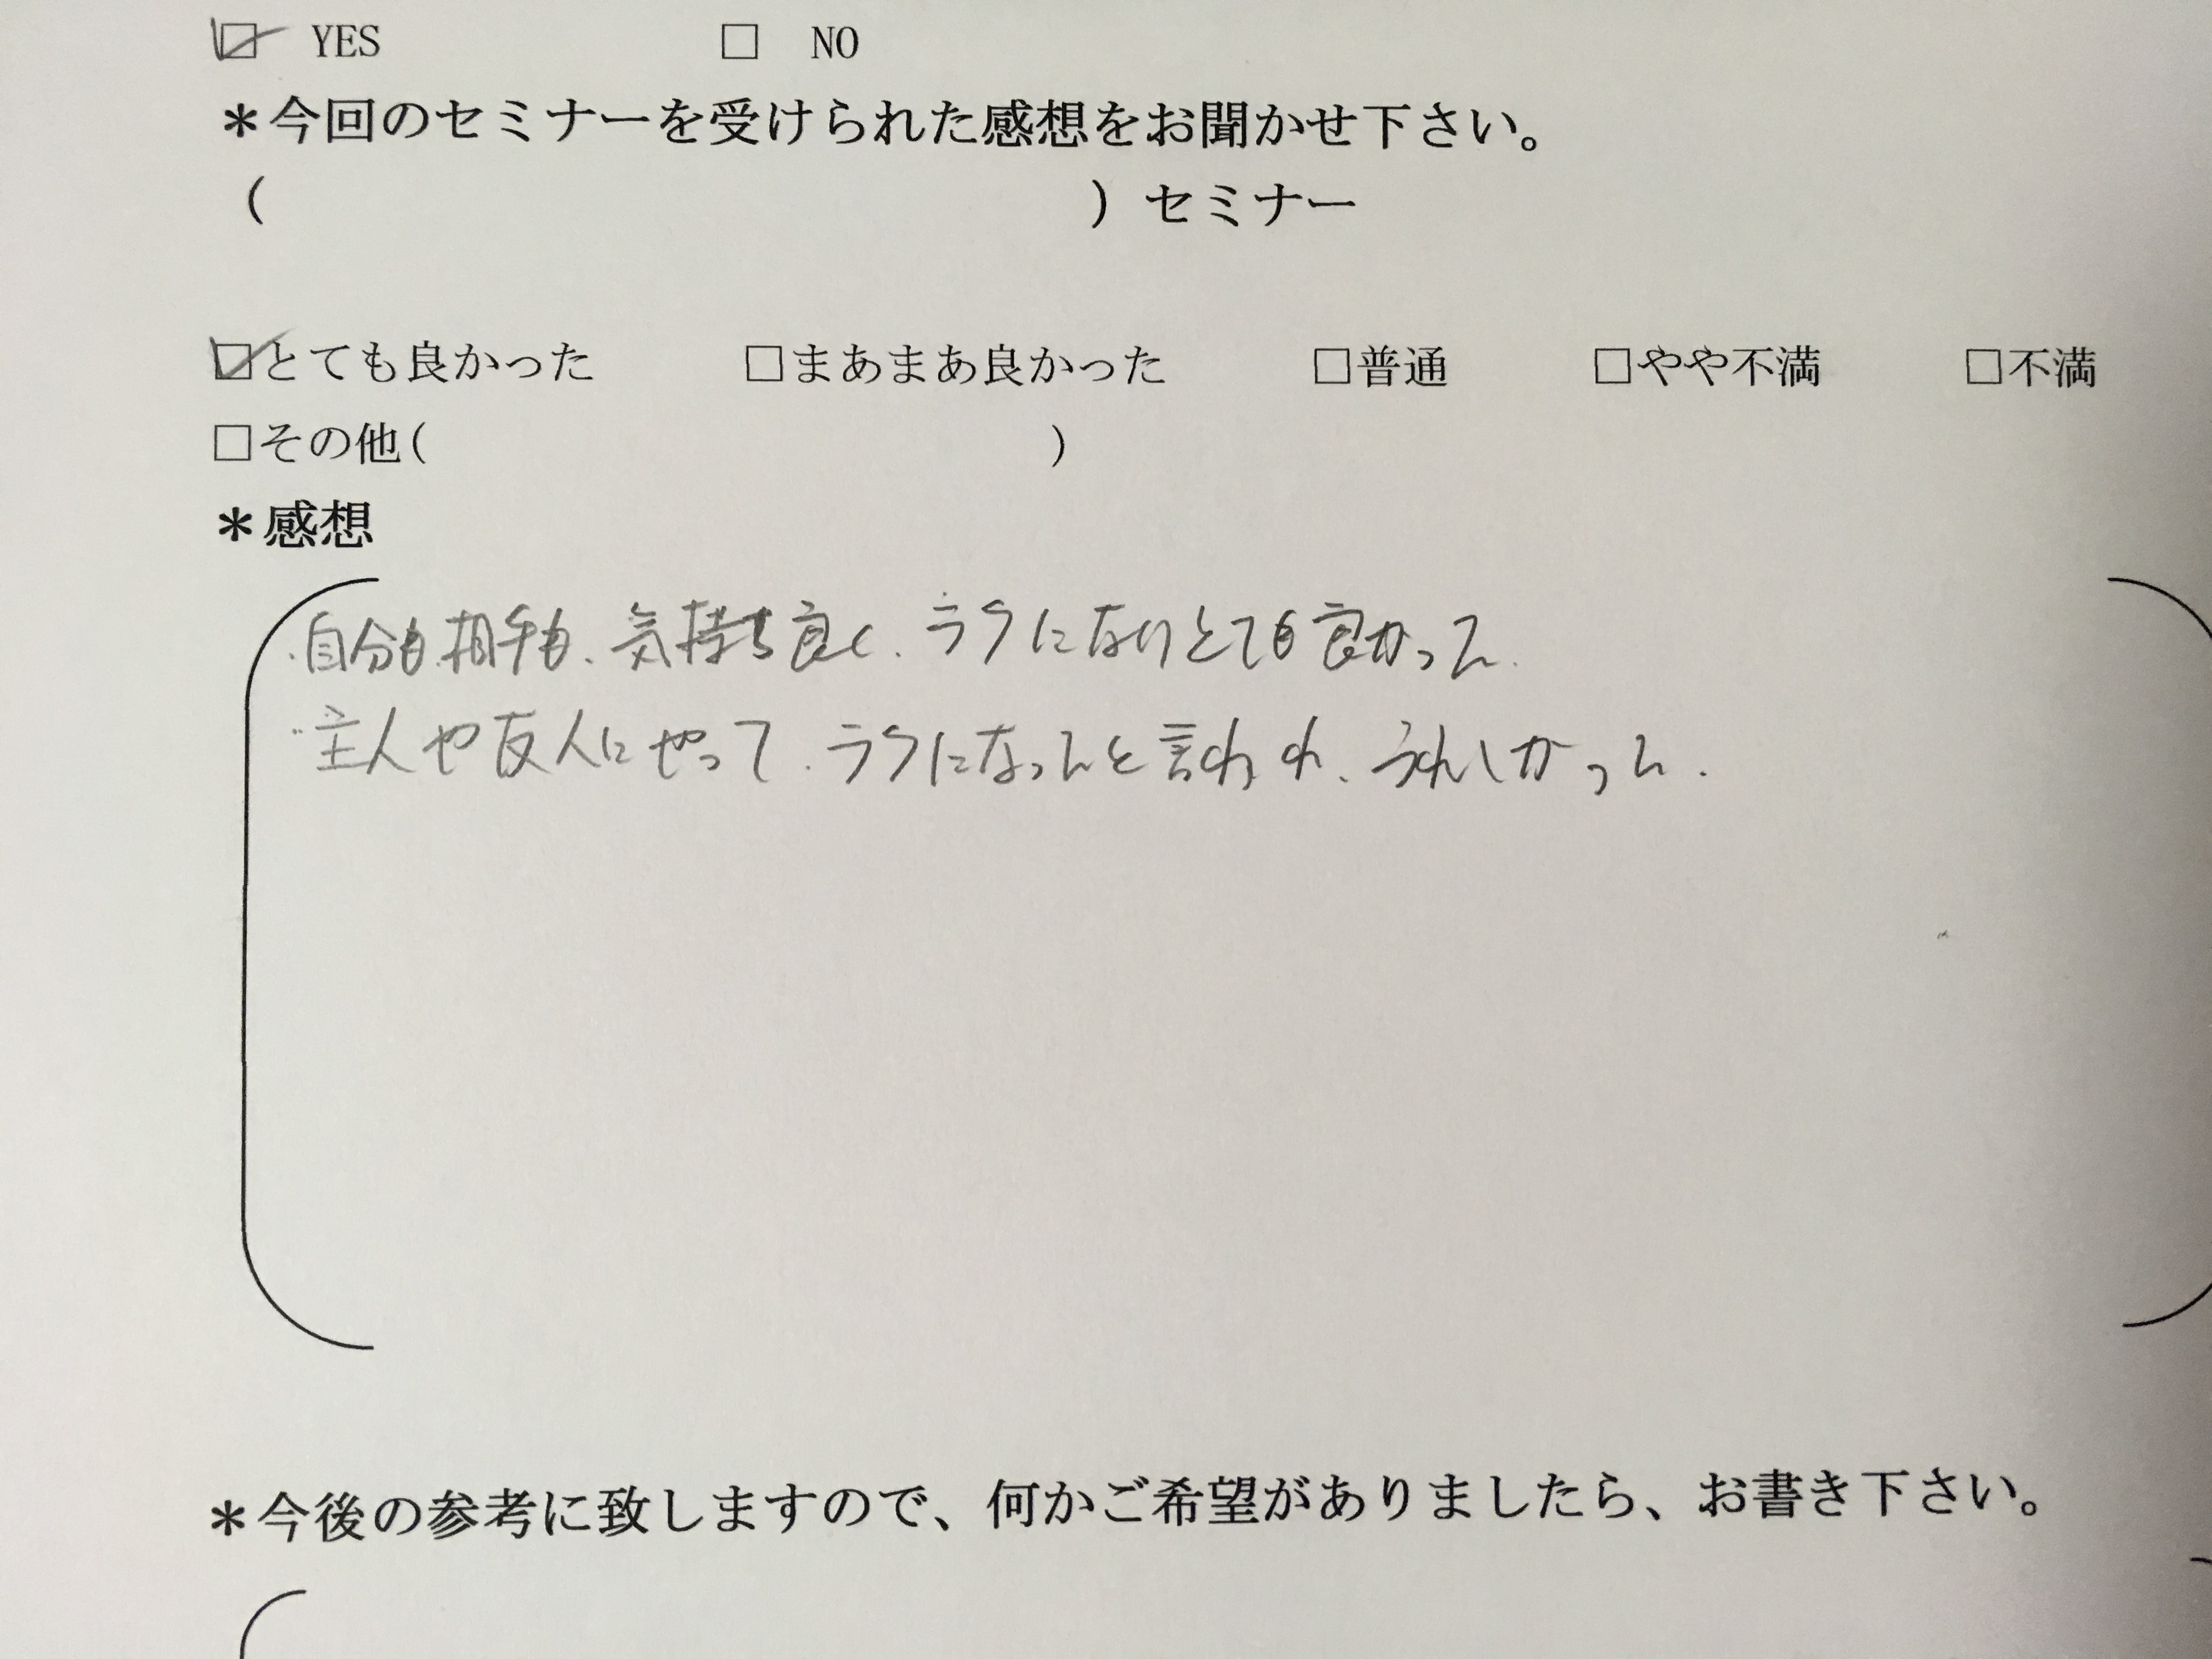 ☑ YES □ NO
＊今回のセミナーを受けられた感想をお聞かせ下さい。
( ) セミナー
☑とても良かった □まあまあ良かった □普通 □やや不満 □不満
□その他( )
＊感想
・自分も相手も、気持ち良く、ラクになりとても良かった。
・主人や友人にやって、ラクになったと言われ、うれしかった。
＊今後の参考に致しますので、何かご希望がありましたら、お書き下さい。